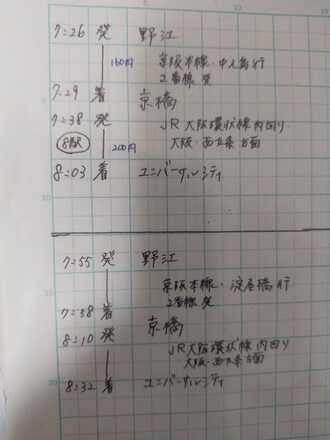 7:26 発 野江
160円 京阪本線・中之島行
2番線 発
7:29 着 京橋
7:38 発
JR大阪環状線内回り
8駅 200円 大阪・西九条方面
8:03 着 ユニバーサルシティ
7:55 発 野江
京阪本線・淀屋橋行
2番線 発
7:58 着 京橋
8:10 発
JR大阪環状線内回り
大阪・西九条方面
8:32 着 ユニバーサルシティ